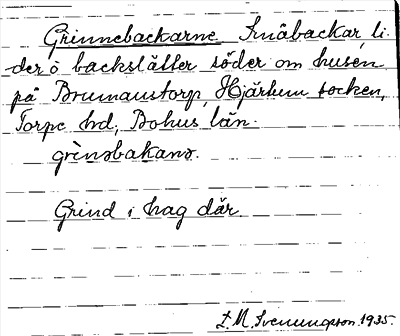 Grinnebackarne Småbackar, li-
der o backslätter söder om husen
på Brumanstorp, Hjärtum socken,
Torpe hd, Bohus län.
grènəbakanə.
Grind i hag där.
S. M. Svenungsson. 1935.